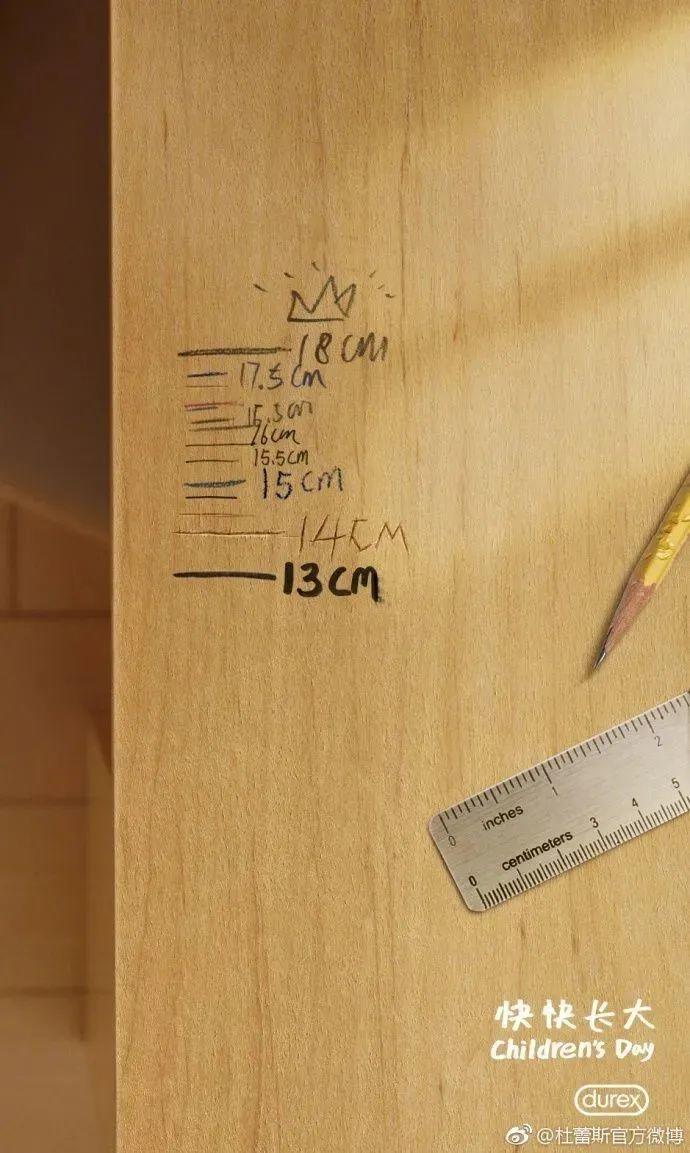 18cm
17.5cm
16.5cm
16cm
15.5cm
15cm
14CM
13cm
2
inches
1
0
5
4
3
centimeters
0
快快长大
Children's Day
durex
@杜蕾斯官方微博